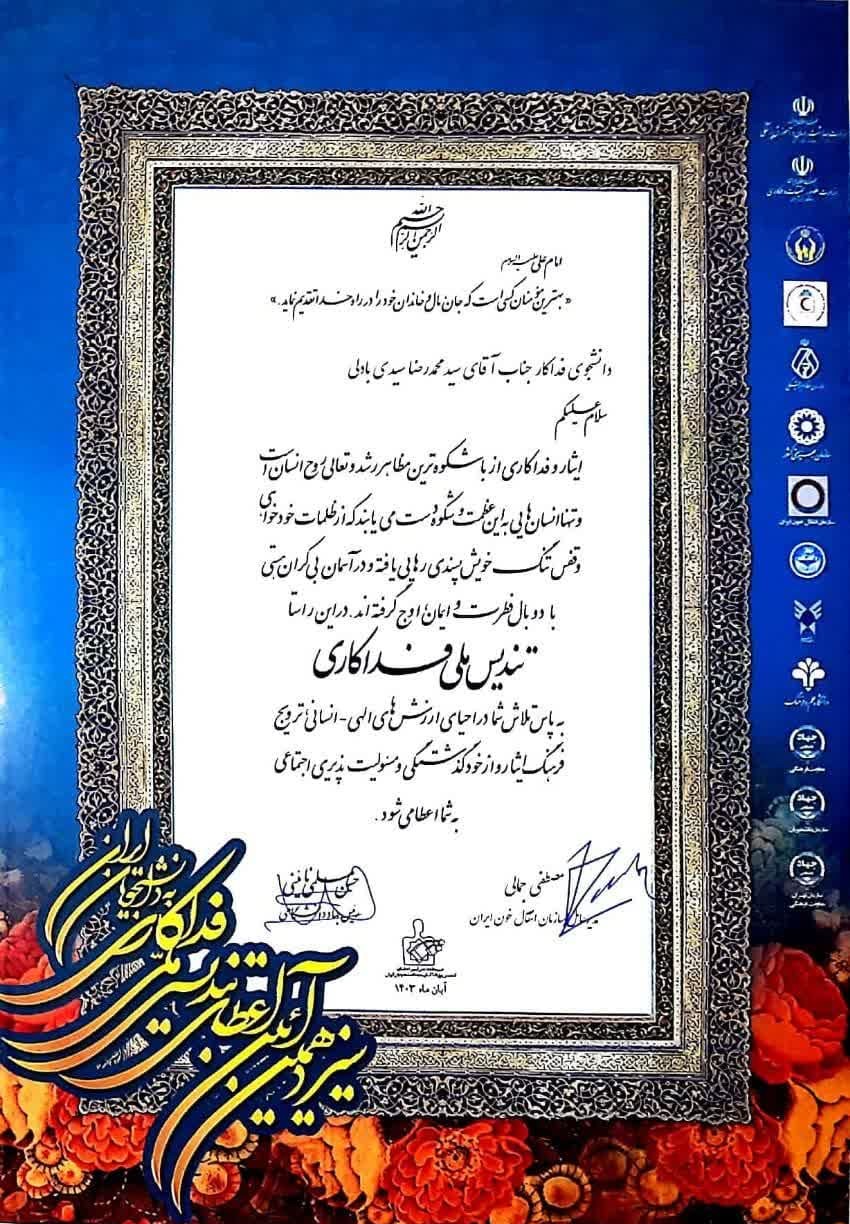 بسم الله الرحمن الرحیم
امام علی علیه السلام
« بهترین مؤمنان کسی است که جان، مال و خاندان خود را در راه خدا تقدیم نماید. »
دانشجوی فداکار جناب آقای سید محمدرضا سیدی بادلی
سلام علیکم
ایثار و فداکاری از باشکوه‌ترین مظاهر رشد و تعالی روح انسان است
و تنها انسان‌هایی به این عظمت و شکوه دست می‌یابند که از ظلمات خودخواهی
و قفس تنگ خویش پسندی رهایی یافته و در آسمان بی‌کران هستی
با دو بال فطرت و ایمان، اوج گرفته‌اند. در این راستا
تندیس ملی فداکاری
به پاس تلاش شما در احیای ارزش‌های الهی - انسانی، ترویج
فرهنگ ایثار و از خودگذشتگی و مسئولیت پذیری اجتماعی
به شما اعطا می‌شود.
مصطفی جمالی
مدیرعامل سازمان انتقال خون ایران
حسن مسلمی نائینی
رئیس جهاددانشگاهی
آبان ماه ۱۴۰۳
سیزدهمین آئین اعطای تندیس ملی فداکاری به دانشجویان ایران
سازمان بهزیستی کشور
سازمان انتقال خون ایران
دانشگاه علم و فرهنگ
جهاد
معاونت فرهنگی
جهاد
سازمان دانشجویان
جهاد
سازمان تهران
معاونت فرهنگی